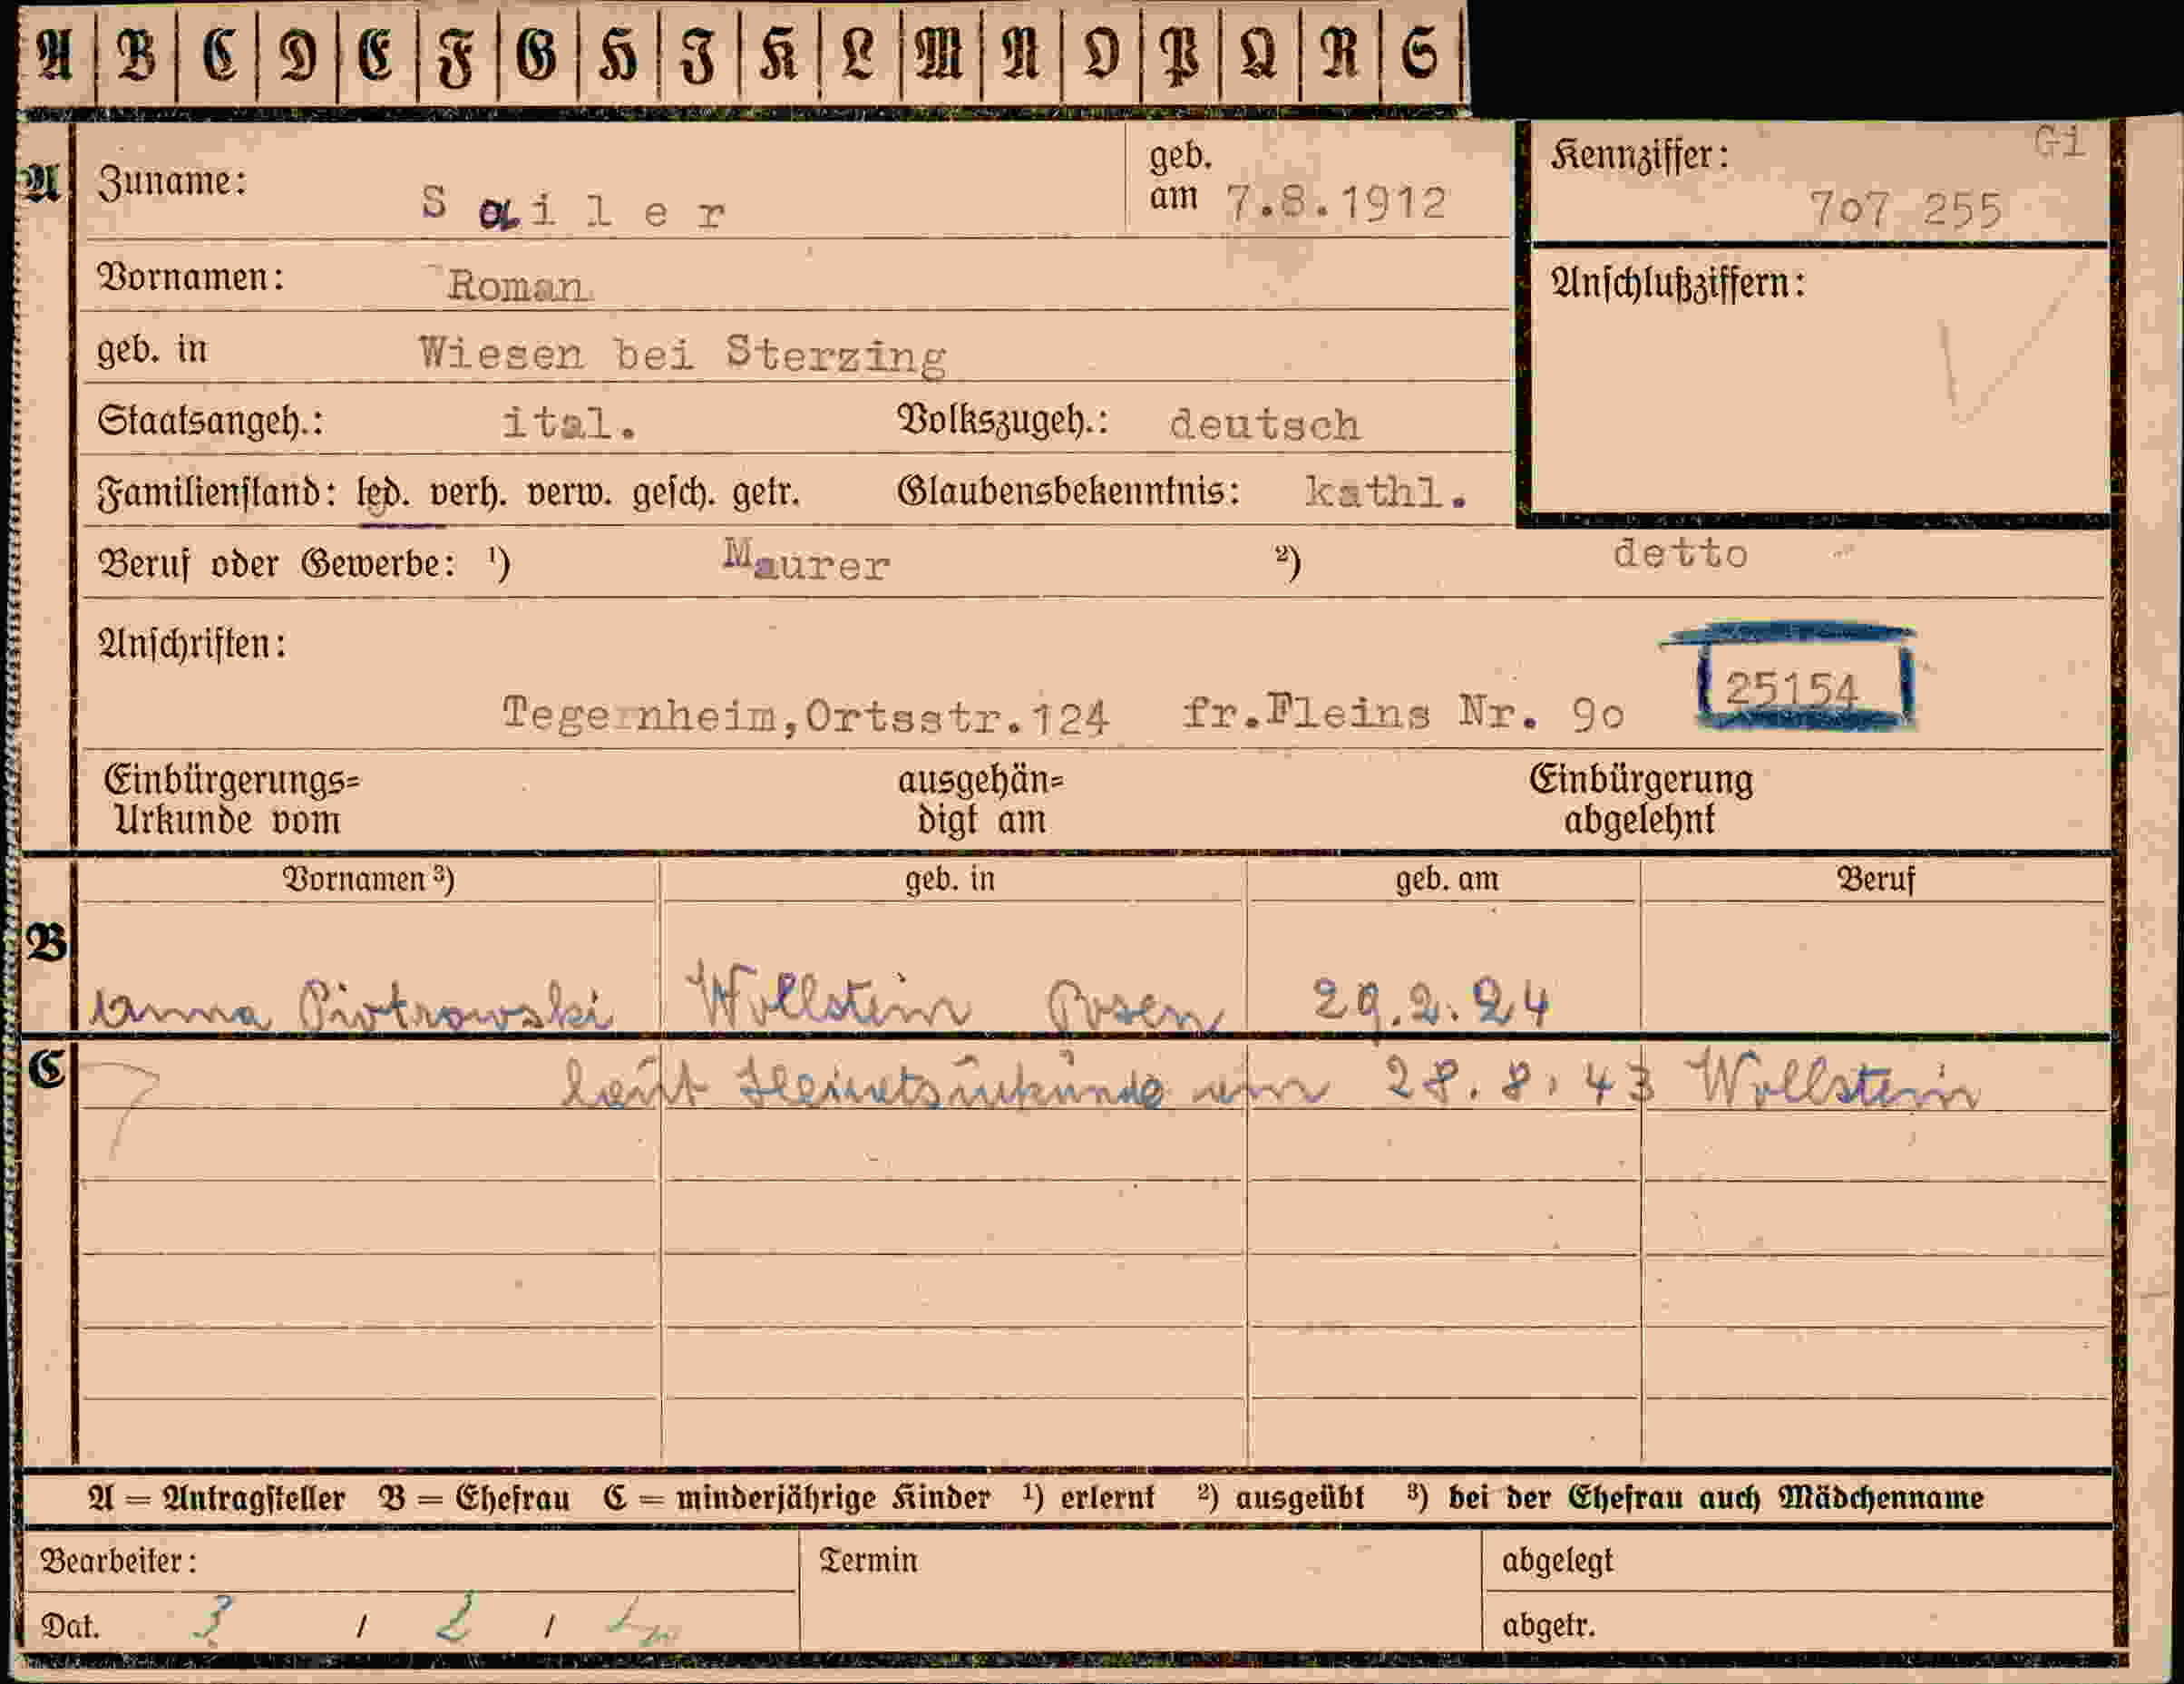 A B C D E F G H I K L M N O P Q R S
A
Zuname: Sailer geb. am 7.8.1912
Kennziffer: G1
707 255
Vornamen: Roman
Anschlußziffern:
geb. in Wiesen bei Sterzing
Staatsangeh.: ital. Volkszugeh.: deutsch
Familienstand: led. verh. verw. gesch. getr. Glaubensbekenntnis: kathl.
Beruf oder Gewerbe: 1) Maurer 2) detto
Anschriften:
25154
Tegernheim,Ortsstr.124 fr.Fleins Nr. 9o
Einbürgerungs= ausgehän= Einbürgerung
Urkunde vom digt am abgelehnt
Vornamen 3) geb. in geb. am Beruf
B
Anna Piotrowski Wollstein Posen 29.2.24
C
laut Heiratsurkunde am 28.8.43 Wollstein
A = Antragsteller B = Ehefrau C = minderjährige Kinder 1) erlernt 2) ausgeübt 3) bei der Ehefrau auch Mädchenname
Bearbeiter: Termin abgelegt
Dat. 3 / 2 / abgetr.